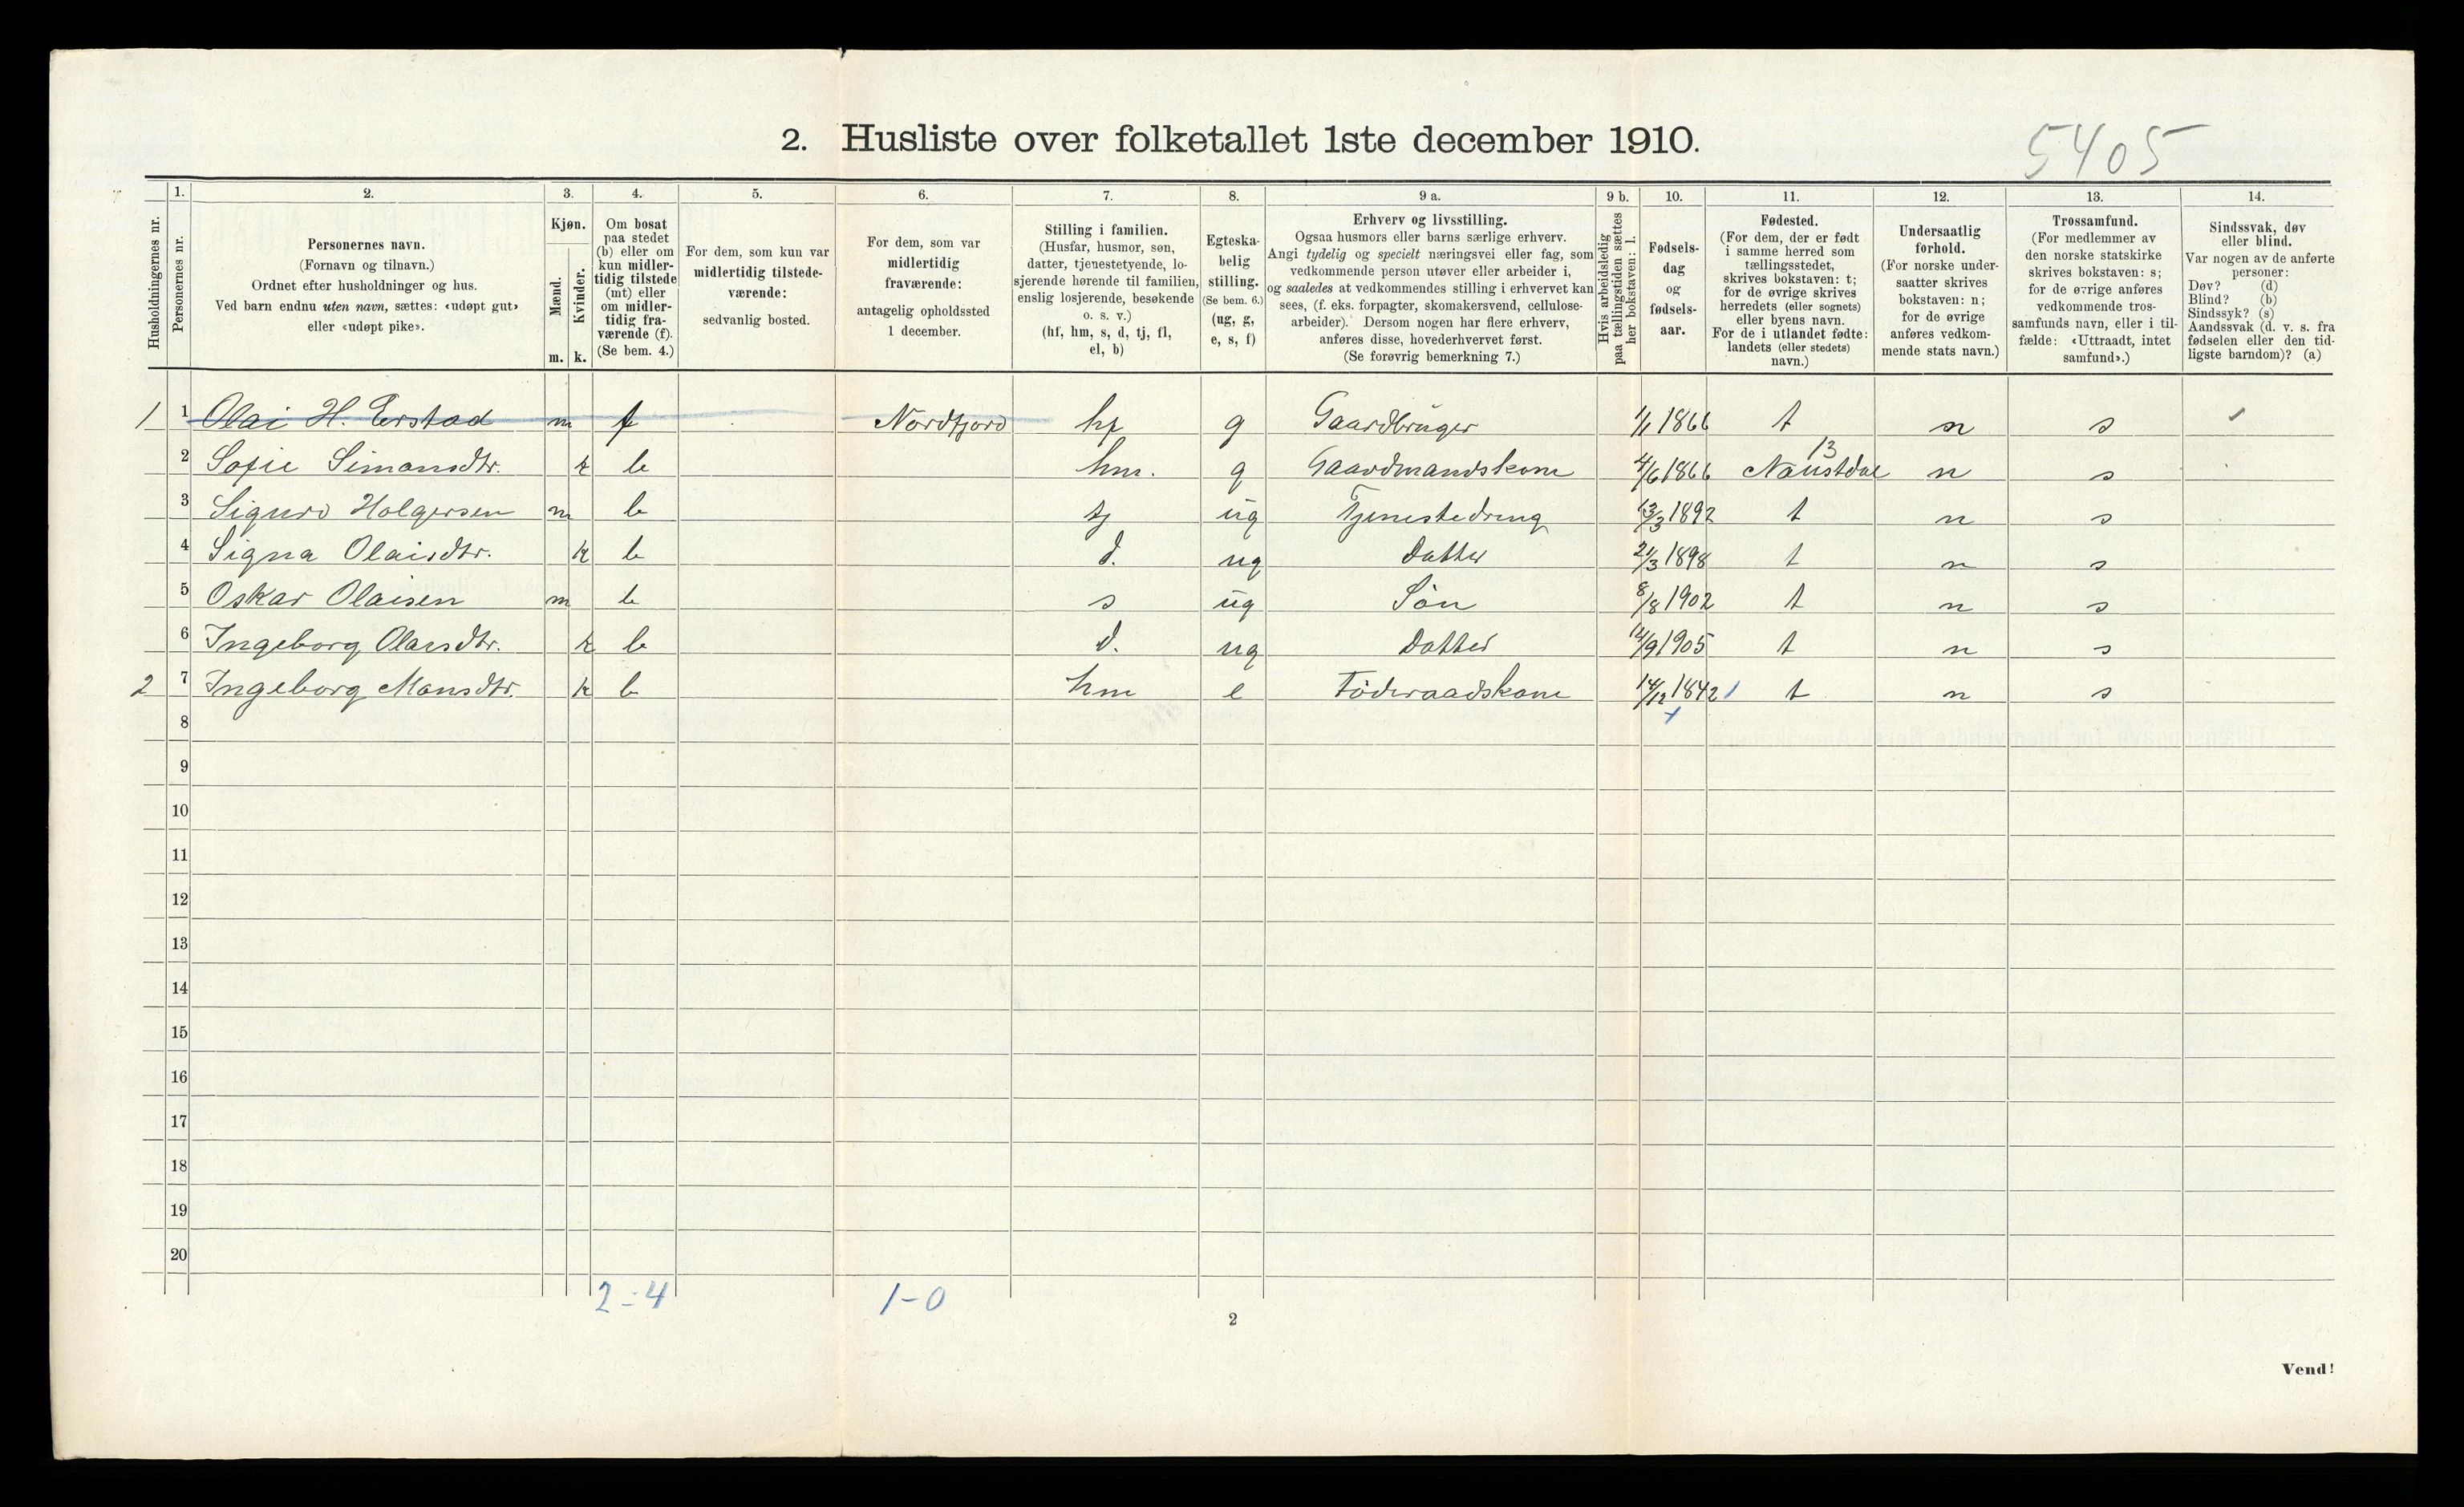 5405
2. Husliste over folketallet 1ste december 1910.
1. 2. 3. 4. 5. 6. 7. 8. 9 a. 9 b. 10. 11. 12. 13. 14.
Husholdningernes nr.
Personernes nr.
Personernes navn.
(Fornavn og tilnavn.)
Ordnet efter husholdninger og hus.
Ved barn endnu uten navn, sættes: «udøpt gut»
eller «udøpt pike».
Kjøn.
Mænd.
Kvinder.
m. k.
Om bosat
paa stedet
(b) eller om
kun midler-
tidig tilstede
(mt) eller
om midler-
tidig fra-
værende (f).
(Se bem. 4.)
For dem, som kun var
midlertidig tilstede-
værende:
sedvanlig bosted.
For dem, som var
midlertidig
fraværende:
antagelig opholdssted
1 december.
Stilling i familien.
(Husfar, husmor, søn,
datter, tjenestetyende, lo-
sjerende hørende til familien,
enslig losjerende, besøkende
o. s. v.)
(hf, hm, s, d, tj, fl,
el, b)
Egteska-
belig
stilling.
(Se bem. 6.)
(ug, g,
e, s, f)
Erhverv og livsstilling.
Ogsaa husmors eller barns særlige erhverv.
Angi tydelig og specielt næringsvei eller fag, som
vedkommende person utøver eller arbeider i,
og saaledes at vedkommendes stilling i erhvervet kan
sees, (f. eks. forpagter, skomakersvend, cellulose-
arbeider). Dersom nogen har flere erhverv,
anføres disse, hovederhvervet først.
(Se forøvrig bemerkning 7.)
Hvis arbeidsledig
paa tællingstiden sættes
her bokstaven: l.
Fødsels-
dag
og
fødsels-
aar.
Fødested.
(For dem, der er født
i samme herred som
tællingsstedet,
skrives bokstaven: t;
for de øvrige skrives
herredets (eller sognets)
eller byens navn.
For de i utlandet fødte:
landets (eller stedets)
navn.)
Undersaatlig
forhold.
(For norske under-
saatter skrives
bokstaven: n;
for de øvrige
anføres vedkom-
mende stats navn.)
Trossamfund.
(For medlemmer av
den norske statskirke
skrives bokstaven: s;
for de øvrige anføres
vedkommende tros-
samfunds navn, eller i til-
fælde: «Uttraadt, intet
samfund».)
Sindssvak, døv
eller blind.
Var nogen av de anførte
personer:
Døv? (d)
Blind? (b)
Sindssyk? (s)
Aandssvak (d. v. s. fra
fødselen eller den tid-
ligste barndom)? (a)
1 1 Olai H. Erstad m f Nordfjord hf g Gaardbruger 1/1 1866 t n s
13
2 Sofie Simonsdtr. k b hm. g Gaardmandskone 4/6 1866 Naustdal n s
3 Sigurd Holgersen m b tj ug Tjenestedreng 13/3 1892 t n s
4 Signa Olaisdtr. k b d. ug Datter 21/3 1898 t n s
5 Oskar Olaisen m b s ug Søn 8/8 1902 t n s
6 Ingeborg Olaisdtr. k b d. ug Datter 14/9 1905 t n s
2 7 Ingeborg Monsdtr. k b hm e Föderaadskone 14/12 1842 t n s
8
9
10
11
12
13
14
15
16
17
18
19
20
2-4 1-0
2
Vend!